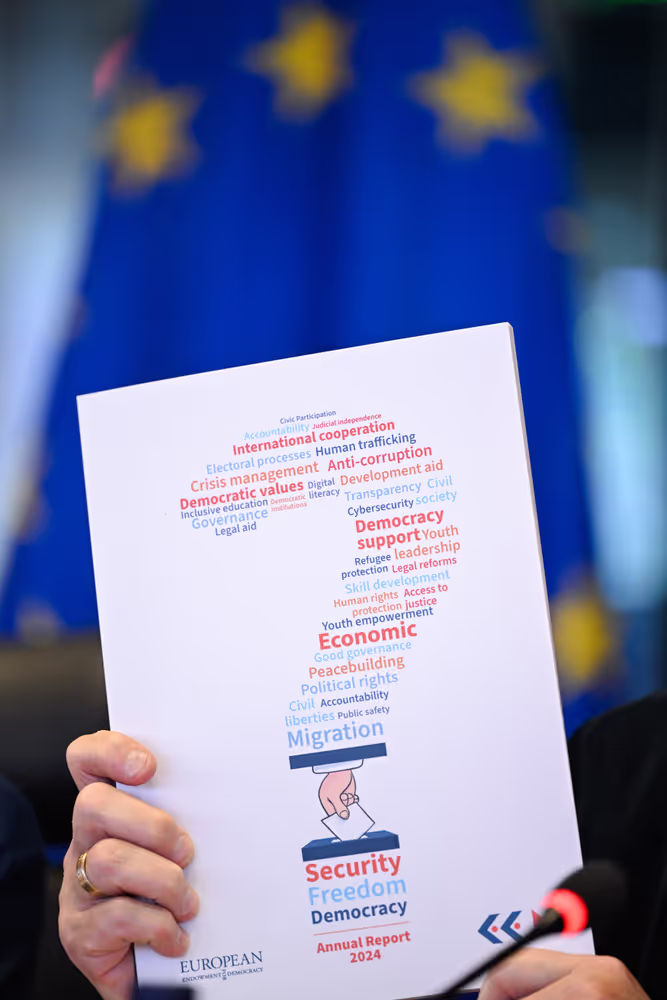 Civic Participation
Accountability Judicial independence
International cooperation
Electoral processes Human trafficking
Crisis management Anti-corruption
Democratic values Digital literacy Development aid
Inclusive education Democratic institutions Transparency Civil society
Governance Cybersecurity
Legal aid Democracy
support Youth
Refugee leadership
protection Legal reforms
Skill development
Human rights Access to
protection justice
Youth empowerment
Economic
Good governance
Peacebuilding
Political rights
Civil Accountability
liberties Public safety
Migration
Security
Freedom
Democracy
Annual Report
2024
EUROPEAN
ENDOWMENT for DEMOCRACY